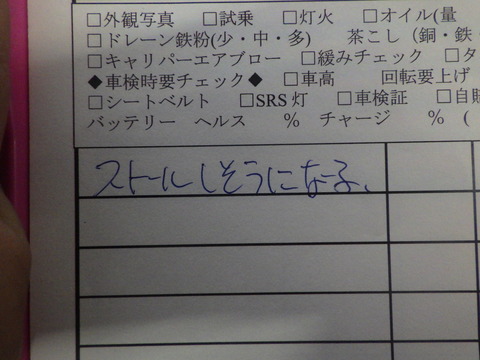 □外観写真 □試乗 □灯火 □オイル(量
□ドレーン鉄粉(少・中・多) 茶こし(銅・鉄・
□キャリパーエアブロー □緩みチェック □タ
◆車検時要チェック◆ □車高 回転要上げ
□シートベルト □SRS灯 □車検証 □自賠
バッテリー ヘルス % チャージ % (
ストールしそうになる、